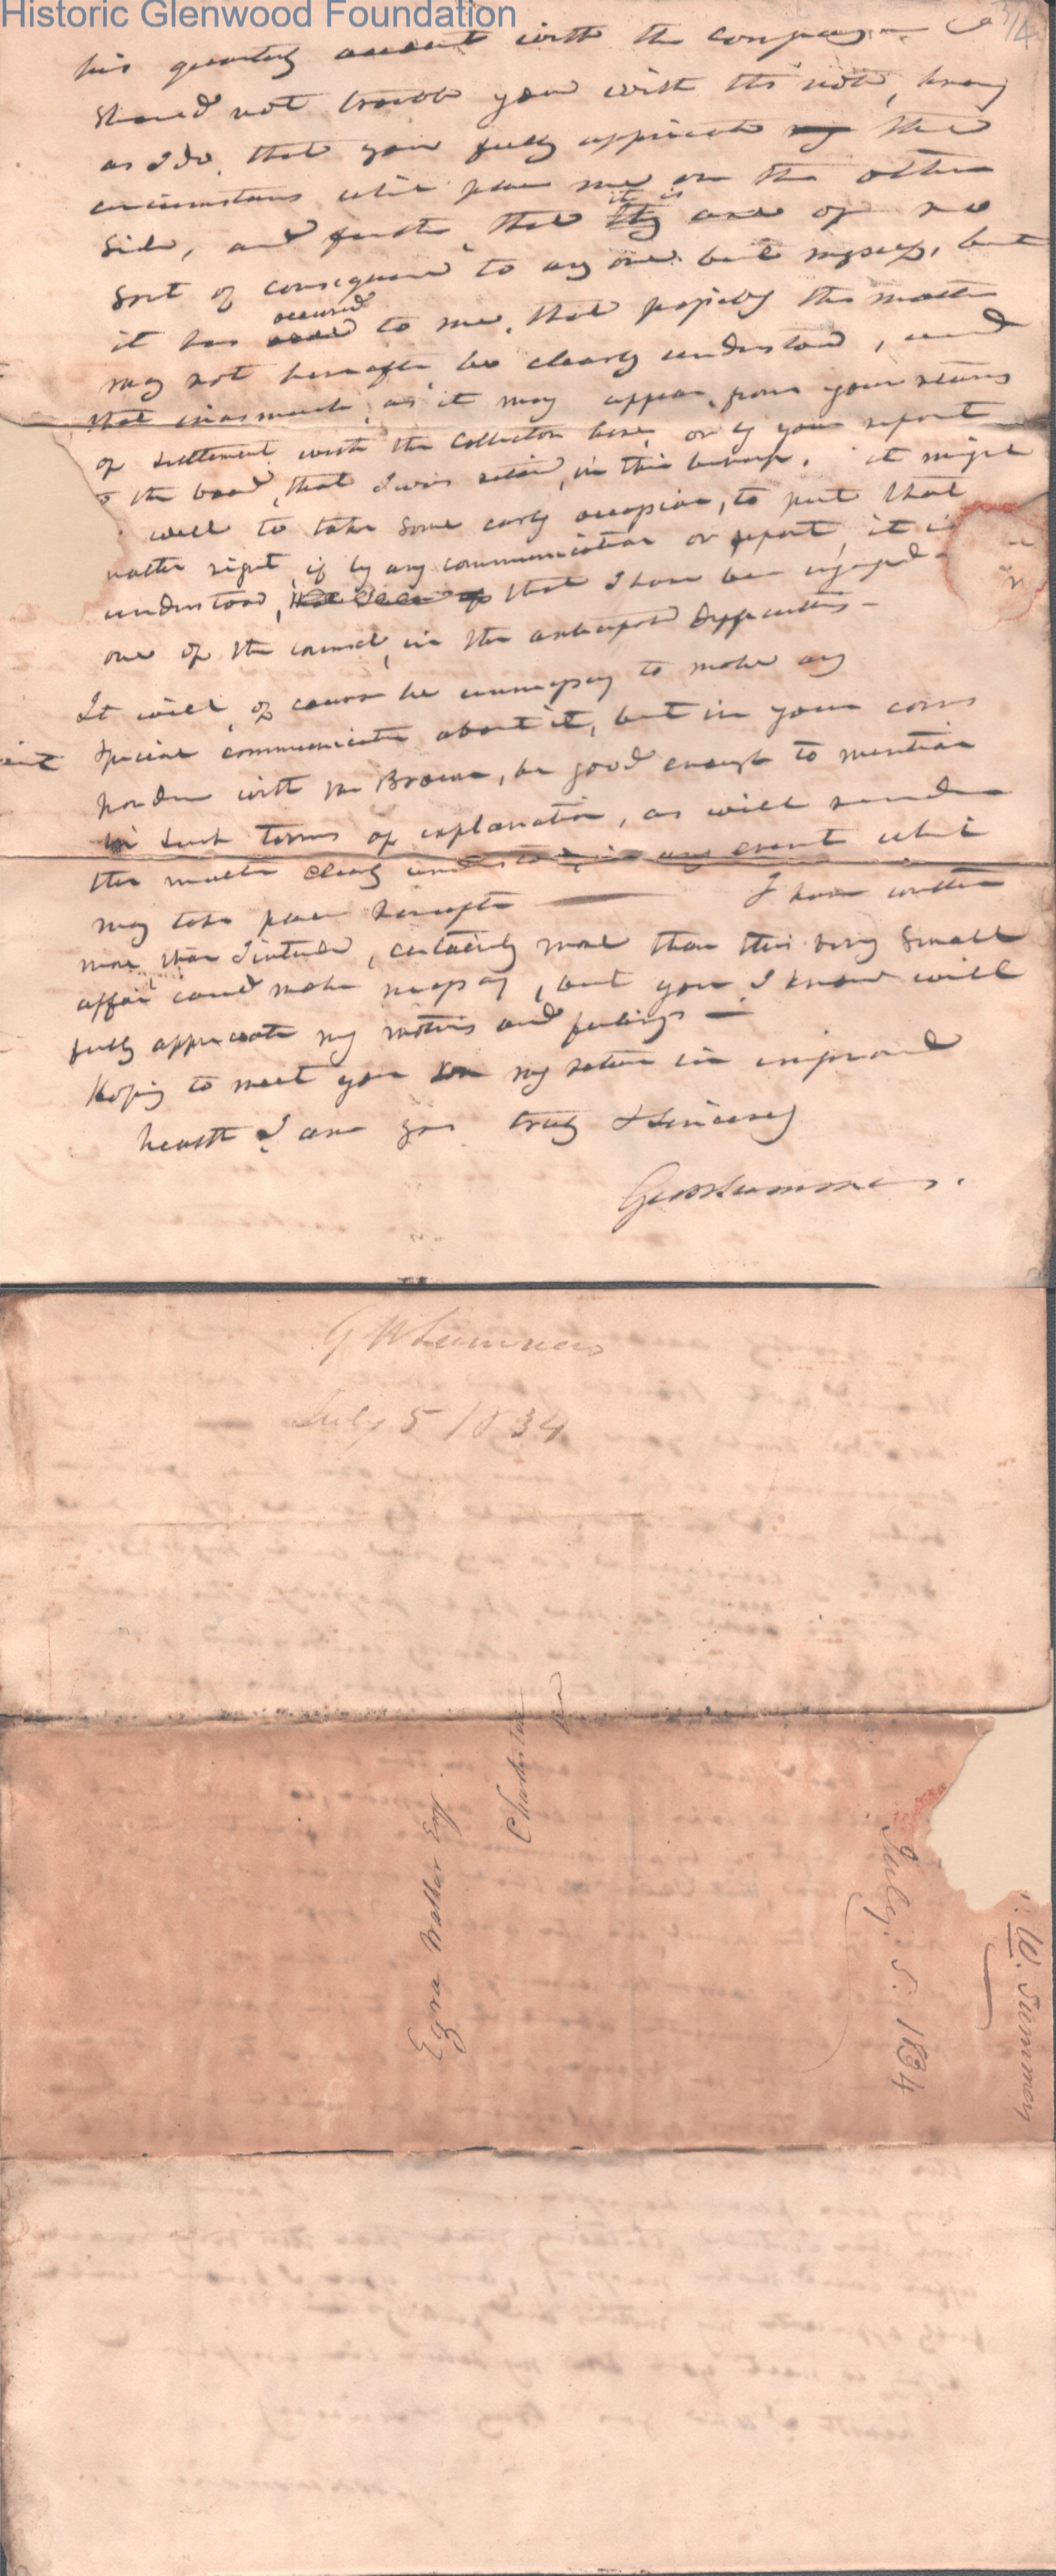 Historic Glenwood Foundation
3/4
his quarterly account with the company — I
should not trouble you with this note, knowing
as I do, that you fully appreciate my the
circumstances which place me on the other
side, and further that it is are of no
sort of consequence to any one but myself, but
it has occurred to me, that possibly the matter
may not hereafter be clearly understood, and
that inasmuch as it may appear, from your returns
of settlement with the Collector here, or by your report
to the board, that I was retained, in this behalf, it might
well to take some early occasion, to put that
matter right, if by any communication or report, it is
understood, that I have been engaged as
one of the counsel, in the anticipated difficulties —
It will of course be unnecessary to make any
special communication about it, but in your corres
pondence with Mr Brown, be good enough to mention
in such terms of explanation, as will render
the matter clearly understood, in any event which
may take place hereafter — I have written
more than I intended, certainly more than this very small
affair could make necessary, but you I know will
fully appreciate my motives and feelings —
Hoping to meet you on my return in improved
health I am yrs truly & sincerely
Geo W Summers.
G W Summers
July 5 1834
Ezra Walker Esqr
Charleston
July. 5. 1834
W. Summers